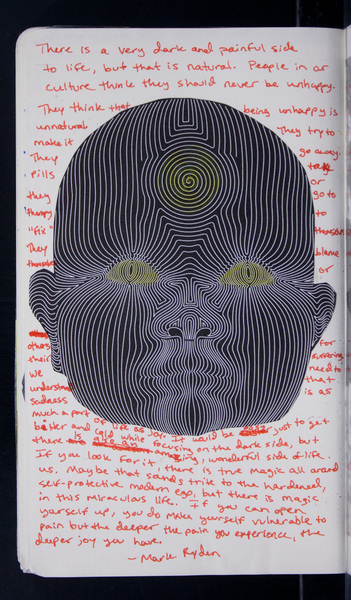 There is a very dark and painful side
to life, but that is natural. People in or
culture think they should never be unhappy.
They think that being unhappy is
unnatural They try to
make it go away.
They take
pills or
they go to
therapy to
"fix" themselves
They blame
themselves or
others for
their suffering
We need to
understand that
sadness is as
much a part of life as joy. It would be easy just to get
bitter and cold while focusing on the dark side, but
there is also an amazing wonderful side of life.
If you look for it, there is true magic all around
us. Maybe that sands trite to the hardened,
self-protective modern ego, but there is magic
in this miraculous life. If you can open
yourself up, you do make yourself vulnerable to
pain but the deeper the pain you experience, the
deeper joy you have.
- Mark Ryden